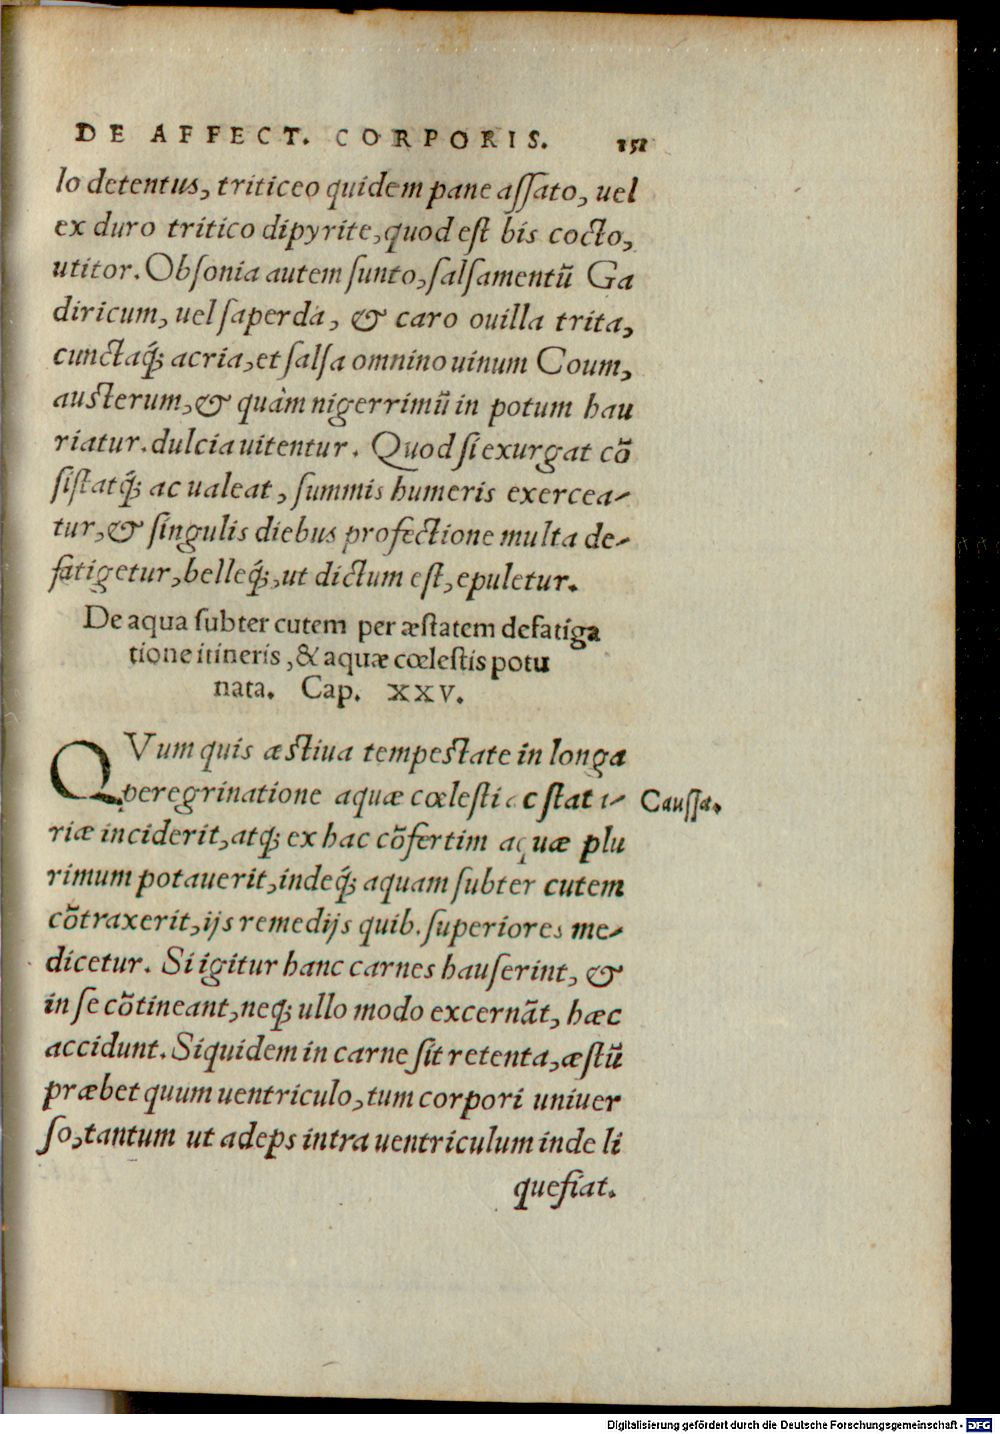 DE AFFECT. CORPORIS. 151
lo detentus, triticeo quidem pane aſſato, uel
ex duro tritico dipyrite, quod eſt bis cocto,
utitor. Obſonia autem ſunto, ſalſamentū Ga
diricum, uel ſaperda, & caro ouilla trita,
cunctaq́; acria, et ſalſa omnino uinum Coum,
auſterum, & quàm nigerrimū in potum hau
riatur. dulcia uitentur. Quod ſi exurgat cō
ſiſtatq́; ac ualeat, ſummis humeris exercea-
tur, & ſingulis diebus profectione multa de-
fatigetur, belleq́;, ut dictum eſt, epuletur.
De aqua ſubter cutem per æſtatem defatiga
tione itineris, & aquæ cœleſtis potu
nata. Cap. XXV.
QVum quis æſtiua tempeſtate in longa
peregrinatione aquæ cœleſti ac ſtat i- Cauſſa.
riæ inciderit, atq; ex hac cōfertim aquæ plu
rimum potauerit, indeq́; aquam ſubter cutem
cōtraxerit, ijs remedijs quib. ſuperiores me-
dicetur. Si igitur hanc carnes hauſerint, &
in ſe cōtineant, neq; ullo modo excernāt, hæc
accidunt. Siquidem in carne ſit retenta, æſtū
præbet quum uentriculo, tum corpori uniuer
ſo, tantum ut adeps intra uentriculum inde li
quefiat.
Digitalisierung gefördert durch die Deutsche Forschungsgemeinschaft - DFG